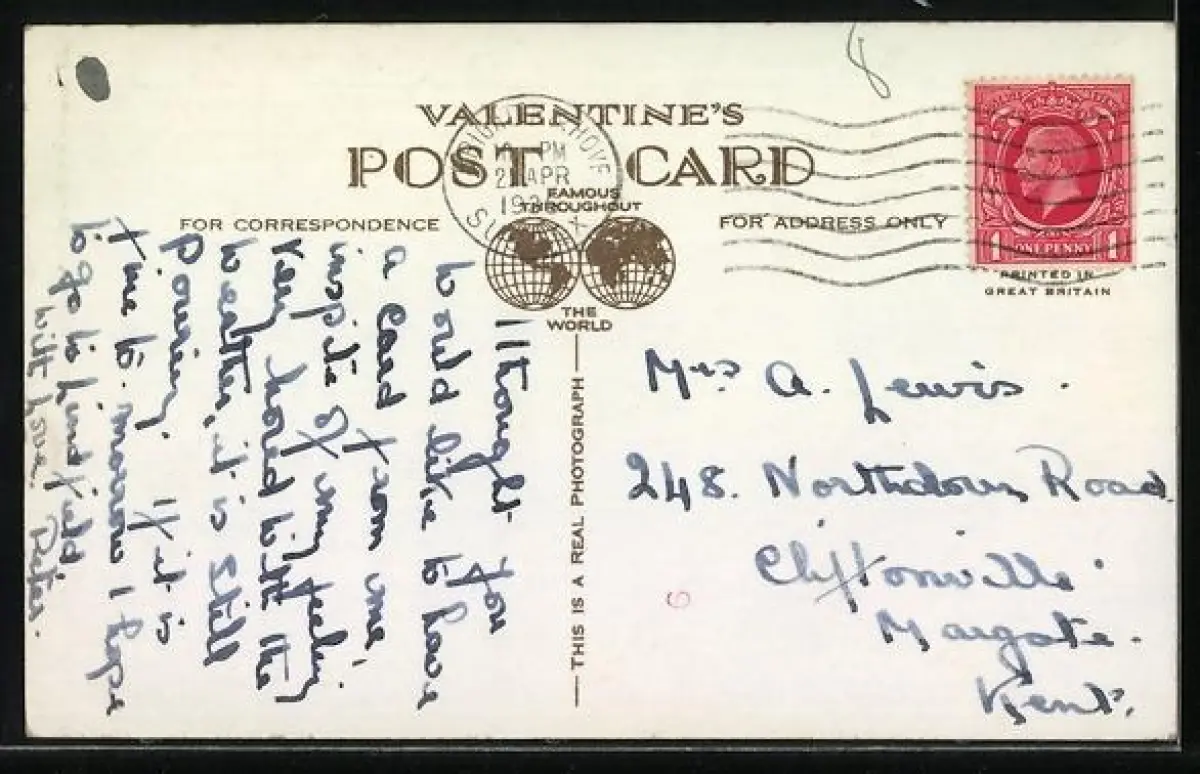 8
VALENTINE'S
POST CARD
PM
APR
19
FAMOUS
THROUGHOUT
THE
WORLD
FOR CORRESPONDENCE
FOR ADDRESS ONLY
1 ONE PENNY 1
PRINTED IN
GREAT BRITAIN
THIS IS A REAL PHOTOGRAPH
I thought you
would like to have
a card from me,
inspite of my feeling
very bored with the
weather, it is still
pouring. If it is
fine to-morrow I hope
to go to Lindfield
with love. Peter.
Mrs A. Lewis.
248. Northdown Road
Cliftonville
Margate.
Kent.
6